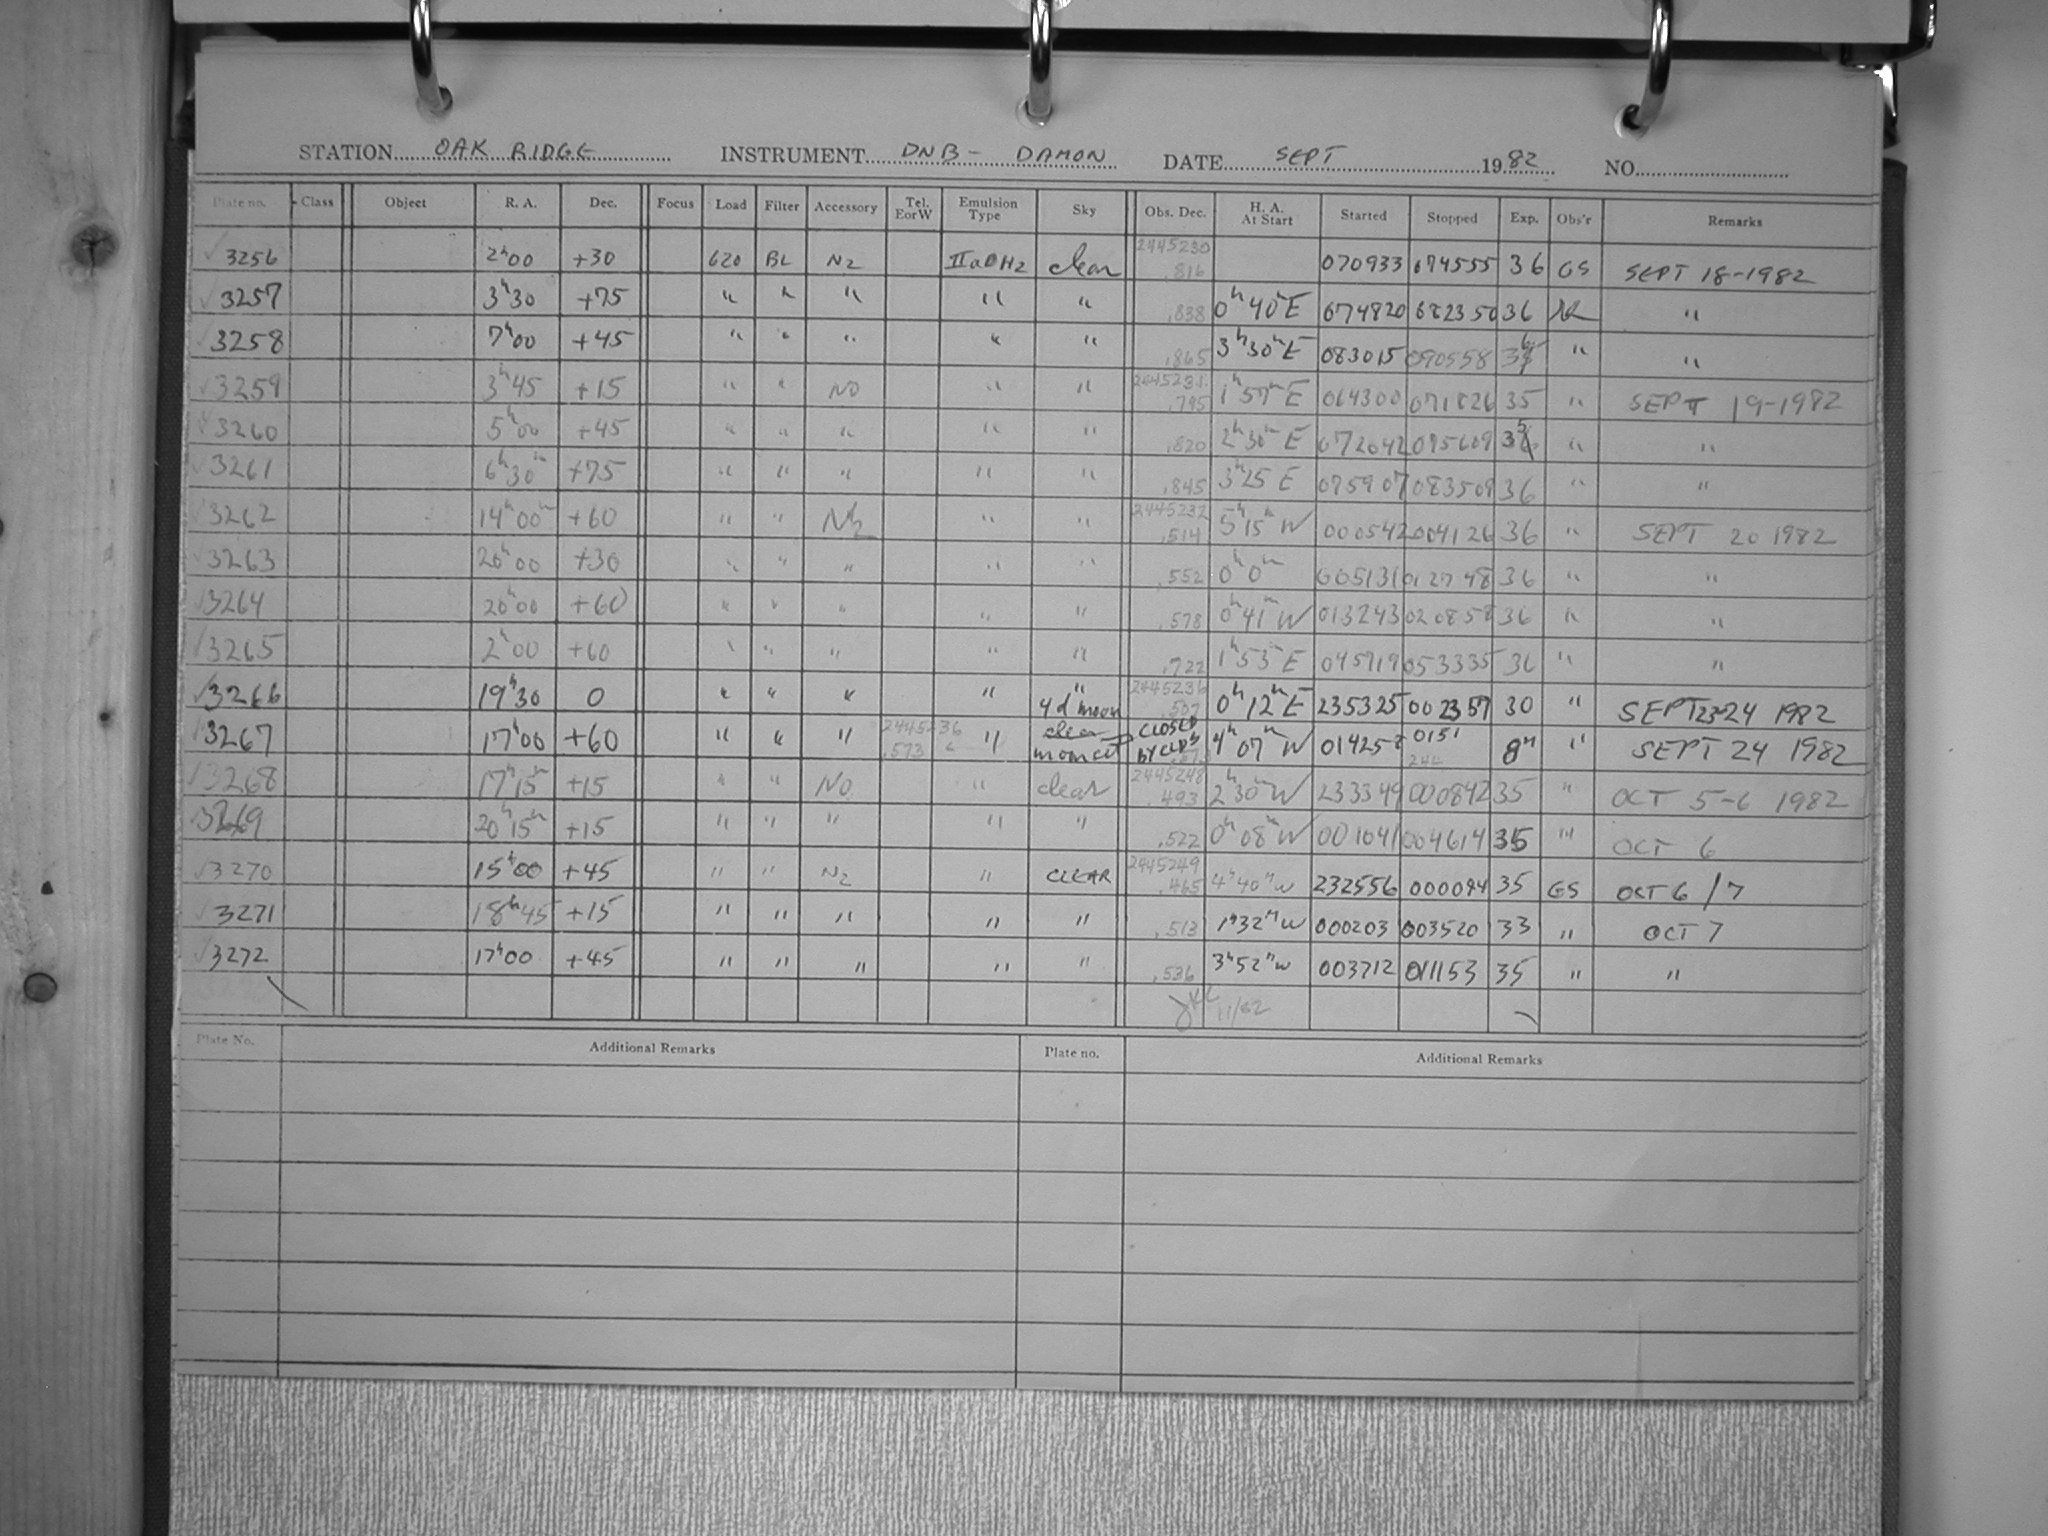 STATION OAK RIDGE INSTRUMENT DNB - DAMON DATE SEPT 1982 NO.
Plate no. Class Object R. A. Dec. Focus Load Filter Accessory Tel. EorW Emulsion Type Sky Obs. Dec. H. A. At Start Started Stopped Exp. Obs'r Remarks
√ 3256 2ʰ00 +30 620 BL N2 IIaOH2 clear 2445230 .816 070933 074555 36 GS SEPT 18-1982
√ 3257 3ʰ30 +75 " " " " " .838 0ʰ40ᵐE 36 "
√ 3258 7ʰ00 +45 " " " " " .865 3ʰ30ᵐE 083015 090558 36 " "
√ 3259 3ʰ45 +15 " " NO " " 2445231 .795 1ʰ57ᵐE 064300 071826 35 " SEPT 19-1982
√ 3260 5ʰ00 +45 " " " " " .820 2ʰ30ᵐE 072042 075609 35 " "
√ 3261 6ʰ30ᵐ +75 " " " " " .845 3ʰ25 E 075907 083509 36 " "
√ 3262 14ʰ00ᵐ +60 " " N2 " " 2445232 .514 5ʰ15ᵐW 000542 004126 36 " SEPT 20 1982
√ 3263 20ʰ00 +30 " " " " " .552 0ʰ0ᵐ 005131 012748 36 " "
√ 3264 20ʰ00 +60 " " " " " .578 0ʰ41ᵐW 013243 020858 36 " "
√ 3265 2ʰ00 +60 " " " " " .722 1ʰ53ᵐE 045719 053335 36 " "
√ 3266 19ʰ30 0 " " " " " 4d moon 2445236 .507 0ʰ12ᵐE 235325 002357 30 " SEPT 23-24 1982
√ 3267 17ʰ00 +60 " " " 2445236 .573 " clear moonset CLOSED BY CLDS 4ʰ07ᵐW 014257 0151 8ᵐ " SEPT 24 1982
√ 3268 17ʰ15ᵐ +15 " " NO " clear 2445248 .493 2ʰ30ᵐW 233349 000842 35 " OCT 5-6 1982
√ 3269 20ʰ15ᵐ +15 " " " " " .522 0ʰ08ᵐW 001041 004614 35 " OCT 6
√ 3270 15ʰ00 +45 " " N2 " CLEAR 2445249 .465 4ʰ40ᵐW 232556 35 GS OCT 6/7
√ 3271 18ʰ45 +15 " " " " " .513 1ʰ32ᵐW 000203 003520 33 " OCT 7
√ 3272 17ʰ00 +45 " " " " " .536 3ʰ52ᵐW 003712 011153 35 " "
11/82
Plate No. Additional Remarks Plate no. Additional Remarks